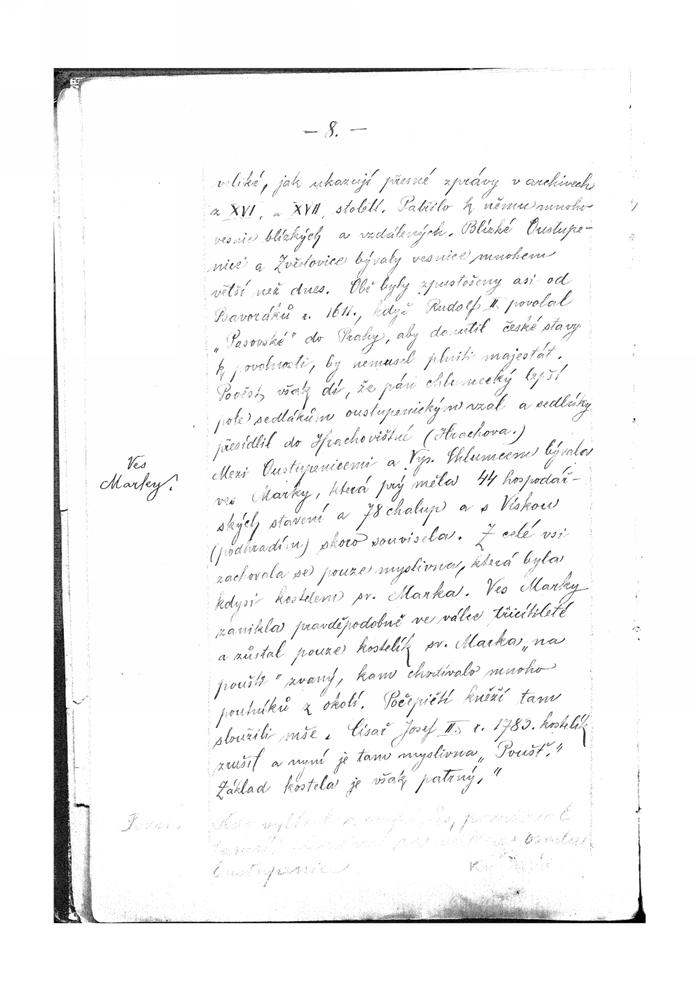 — 8. —
veliké, jak ukazují přesné zprávy v archivech
z XVI. a XVII. století. Patřilo k němu mnoho
vesnic blízkých a vzdálených. Blízké Oustupe-
nice a Zvěstovice bývaly vesnice mnohem
větší než dnes. Obě byly zpustošeny asi od
Bavoráků r. 1611., když Rudolf II. povolal
„Pasovské" do Prahy, aby donutil české stavy
k povolnosti, by nemusel plniti majestát.
Pověst však dí, že páni chlumecký lepší
pole sedlákům oustupenickým vzal a sedláky
přesídlil do Hrachovištně (Hrachova.)
Ves
Marky.
Mezi Oustupenicemi a Vys. Chlumcem bývala
ves Marky, která prý měla 44 hospodář-
ských stavení a 78 chalup a s Vískou
(podhradím) skoro souvisela. Z celé vsi
zachovala se pouze myslivna, která byla
kdysi kostelem sv. Marka. Ves Marky
zanikla pravděpodobně ve válce třicítileté
a zůstal pouze kostelík sv. Marka „na
poušti" zvaný, kam chodívalo mnoho
poutníků z okolí. Počepičtí kněží tam
sloužili mše. Císař Josef II. r. 1783. kostelík
zrušil a nyní je tam myslivna „Poušť."
Základ kostela je však patrný."
Oustupenic